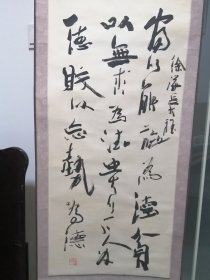 富以能施為德貧
以無求為德貴以下人為
德賤以忘勢
為德